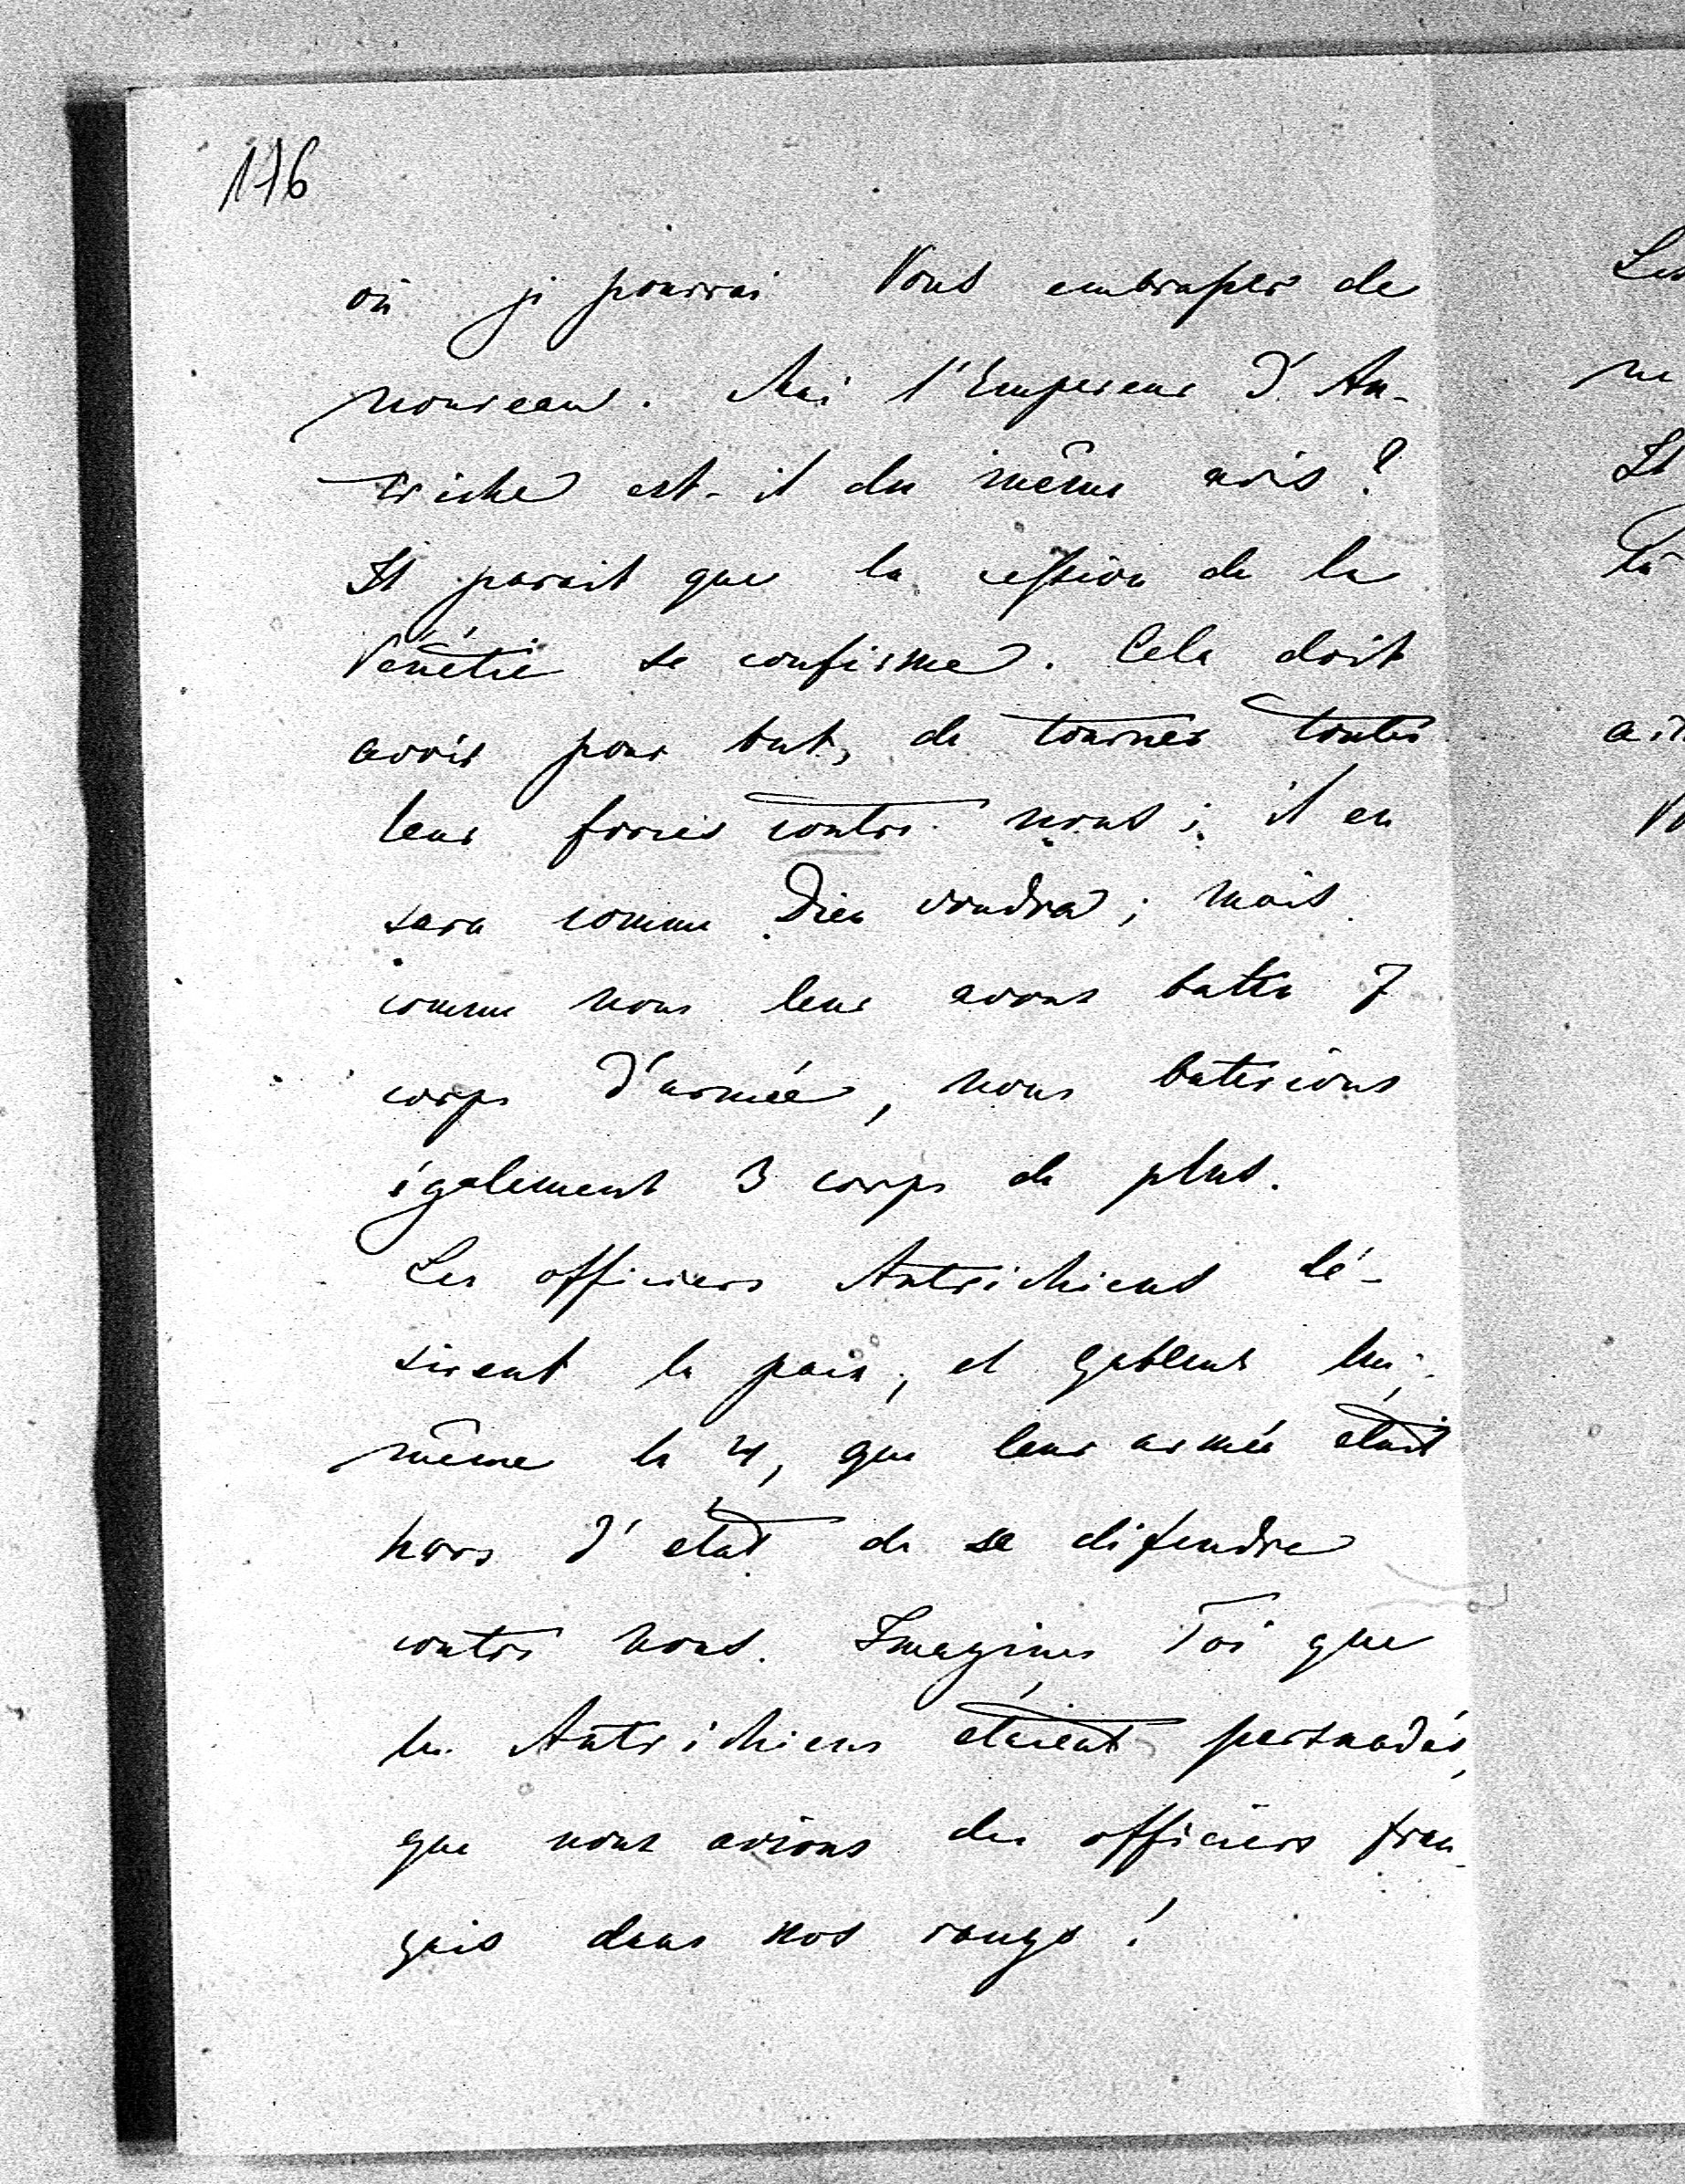 176
où je pourrai Vous embrasser de
nouveau. Mai l'Empereur d'Au-
triche est-il du même avis?
Il parait que la cession de la
Vénétie se confirme. Cela doit
avoir pour but, de tourner toutes
leur forces contre nous; il en
sera comme Dieu voudra; mais
comme nous leur avons battu 7
corps d'armée, nous baterions
également 3 corps de plus.
Les officiers Autrichiens dé-
sirent la paix, et Gablenz lui-
même le 4, que leur armée était
hors d'état de se défendre
contre nous. Imagines Toi que
les Autrichiens étaient persuadés,
que nous avions des officiers fran-
çais dans nos rangs!